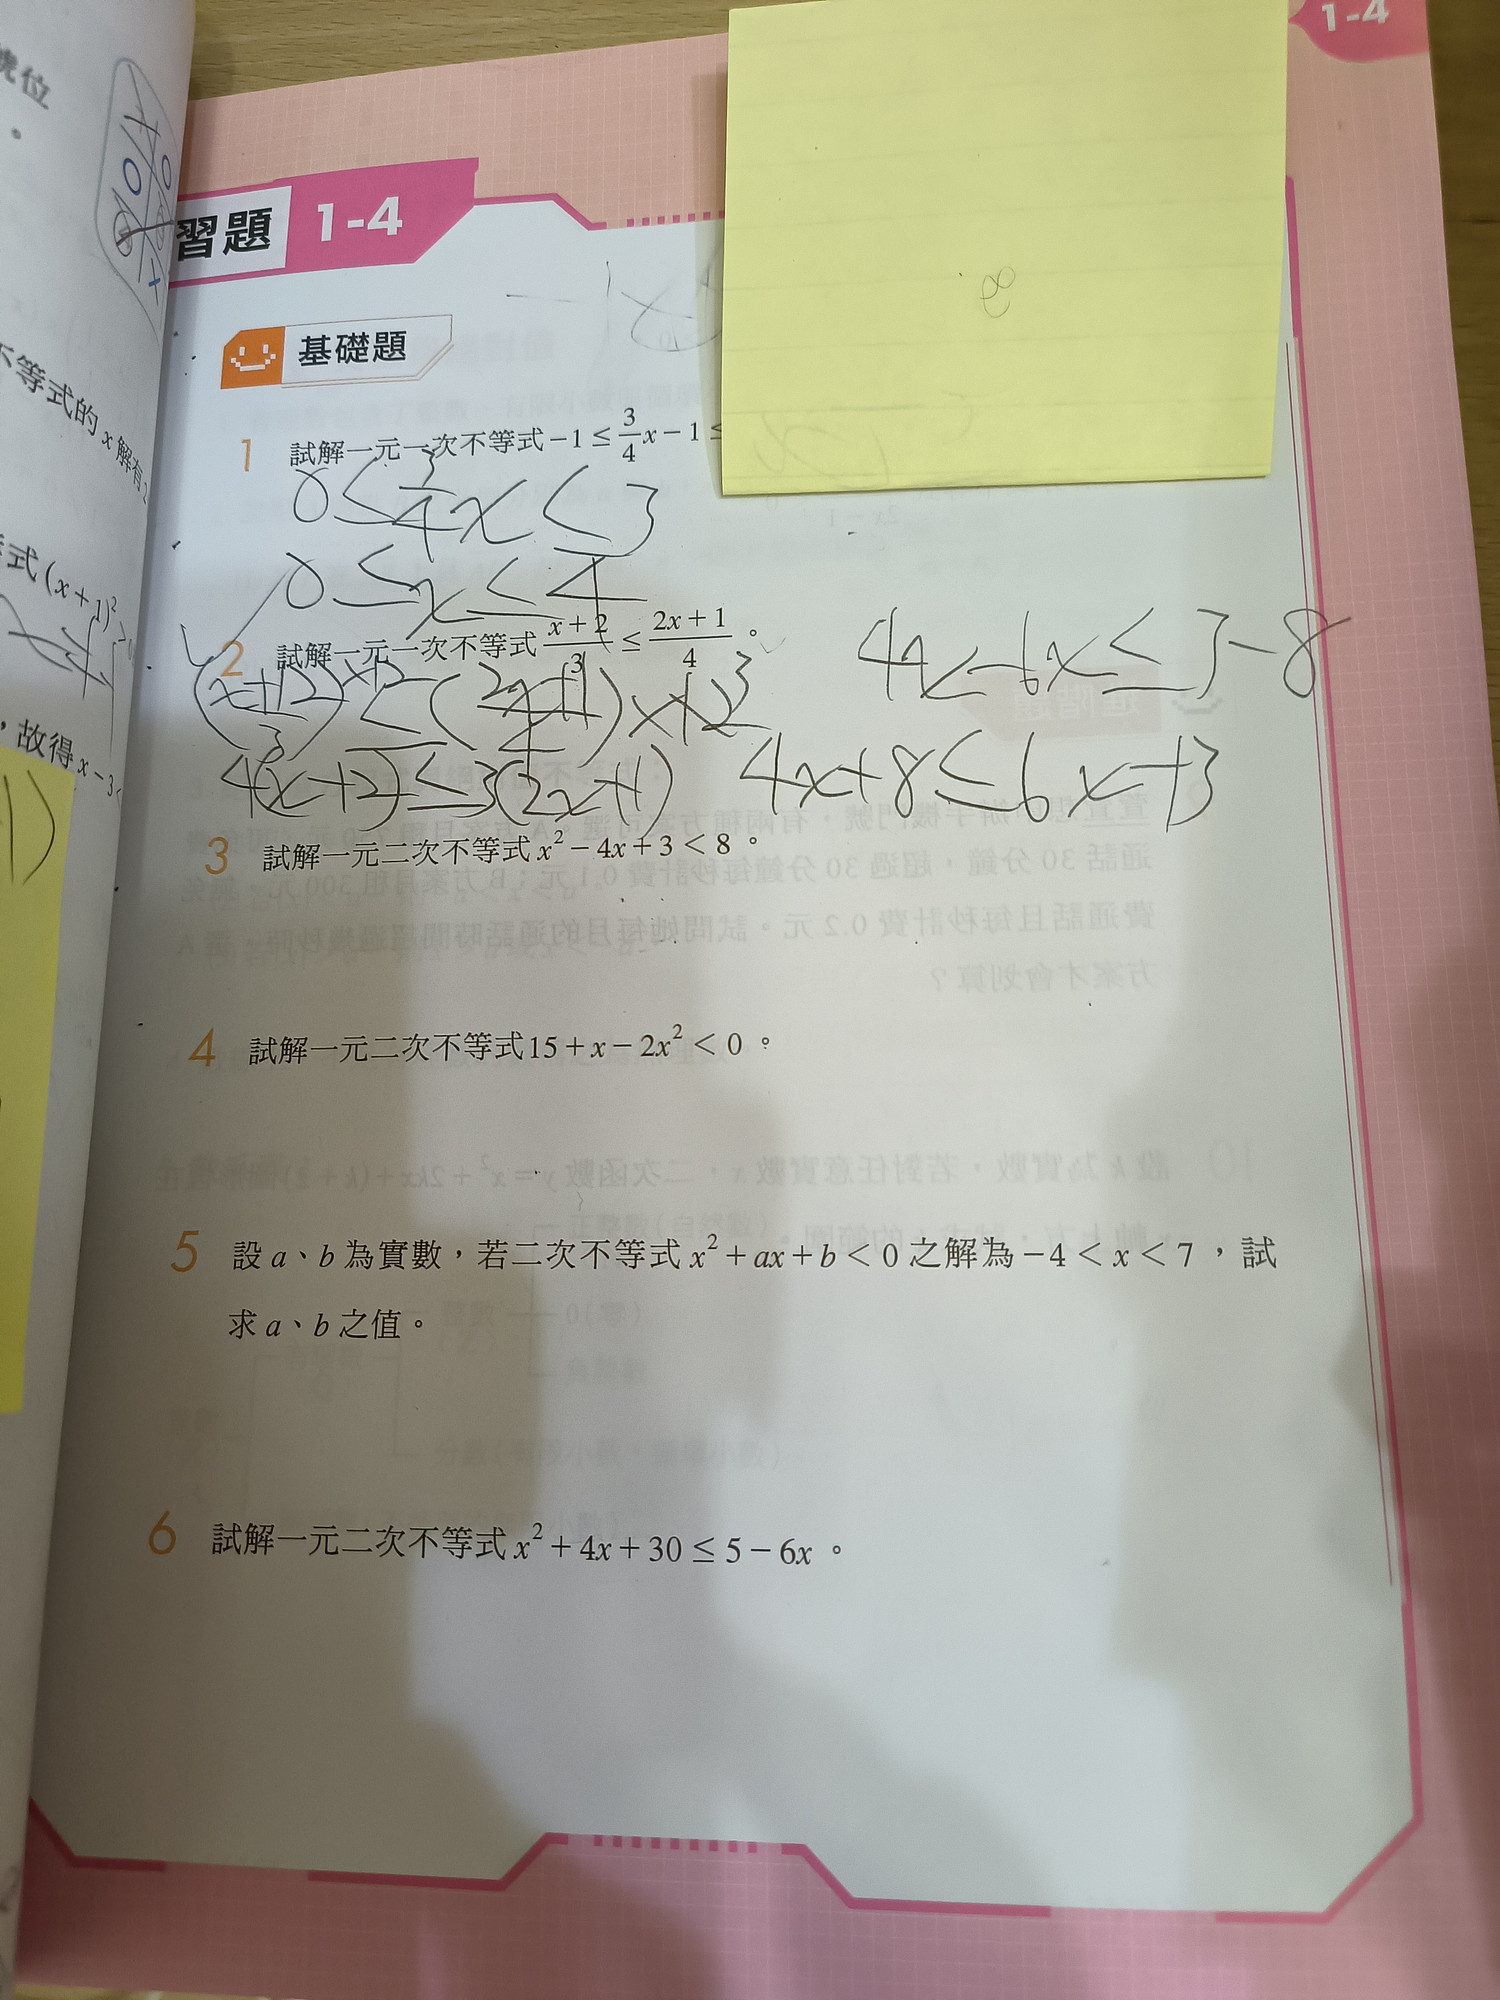 1-4
號位
。
習題 1-4
基礎題
不等式的 x 解有
1 試解一元一次不等式 -1 ≤ 3/4 x - 1 ≤
0 ≤ 3/4 x ≤ 3
0 ≤ x ≤ 4
等式 (x + 1)²
2 試解一元一次不等式 (x + 2)/3 ≤ (2x + 1)/4 。
4x - 6x ≤ 3 - 8
4(x+2) ≤ 3(2x+1) 4x+8 ≤ 6x+3
,故得 x - 3 <
3 試解一元二次不等式 x² - 4x + 3 < 8 。
4 試解一元二次不等式 15 + x - 2x² < 0 。
5 設 a、b 為實數,若二次不等式 x² + ax + b < 0 之解為 -4 < x < 7 ,試
求 a、b 之值。
6 試解一元二次不等式 x² + 4x + 30 ≤ 5 - 6x 。